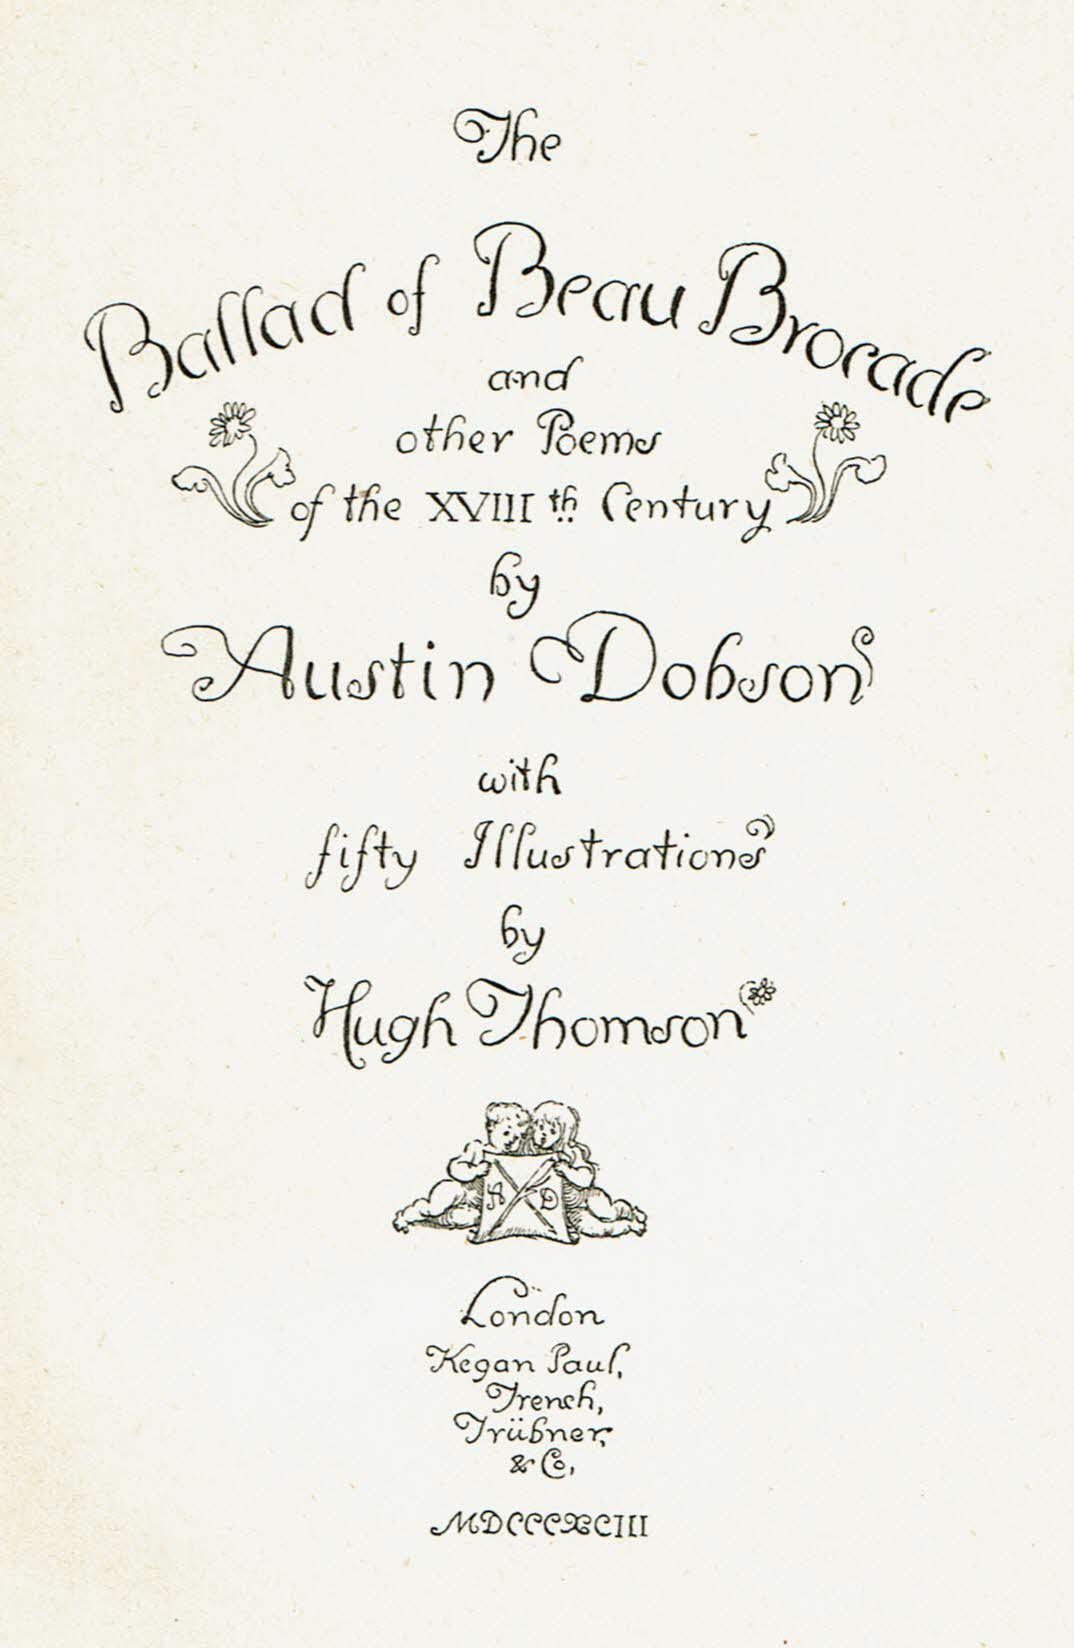 The
Ballad of Beau Brocade
and
other Poems
of the XVIIIth Century
by
Austin Dobson
with
fifty Illustrations
by
Hugh Thomson
A D
London
Kegan Paul,
Trench,
Trübner,
& Co,
MDCCCXCIII